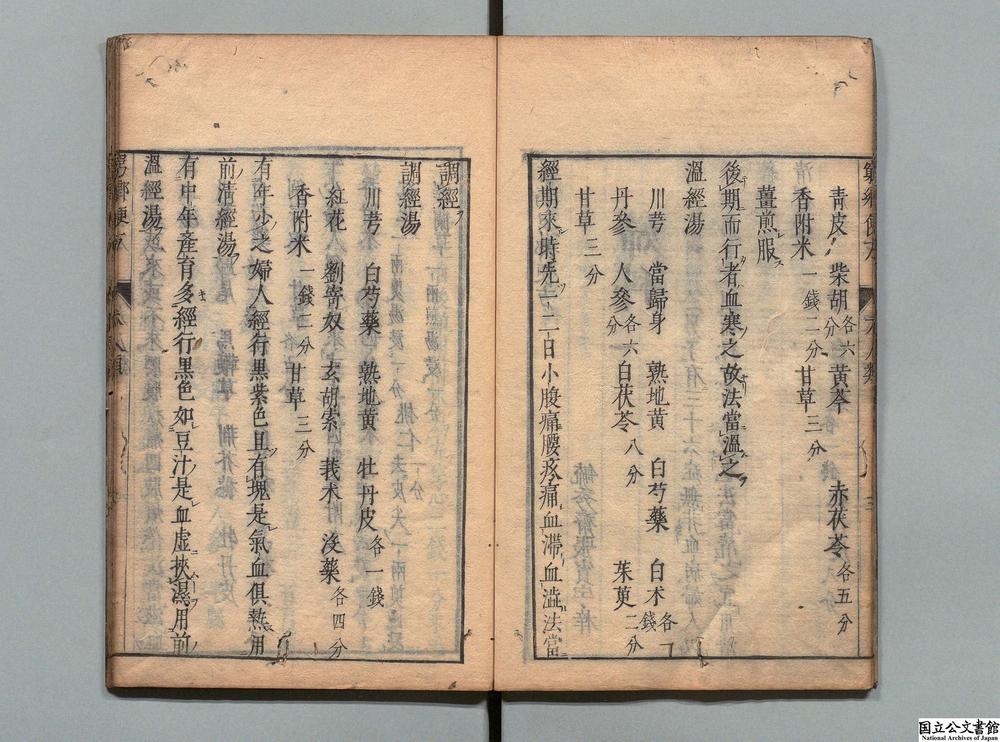 青皮 柴胡各六分 黃芩 赤茯苓各五分
香附米一錢二分 甘草三分
薑煎服
後期而行者血寒之故法當溫之
溫經湯
川芎 當歸身 熟地黃 白芍藥 白朮各一錢
丹參 人參各六分 白茯苓八分 茱萸二分
甘草三分
經期來時先一二日小腹痛腰疼痛血滯血澁法當
調經
調經湯
川芎 白芍藥 熟地黃 牡丹皮各一錢
紅花 劉寄奴 玄胡索 莪术 沒藥各四分
香附米一錢二分 甘草三分
有年少之婦人經行黑紫色且有塊是氣血俱熱用
前清經湯
有中年產育多經行黑色如豆汁是血虛挾濕用前
溫經湯
国立公文書館
National Archives of Japan